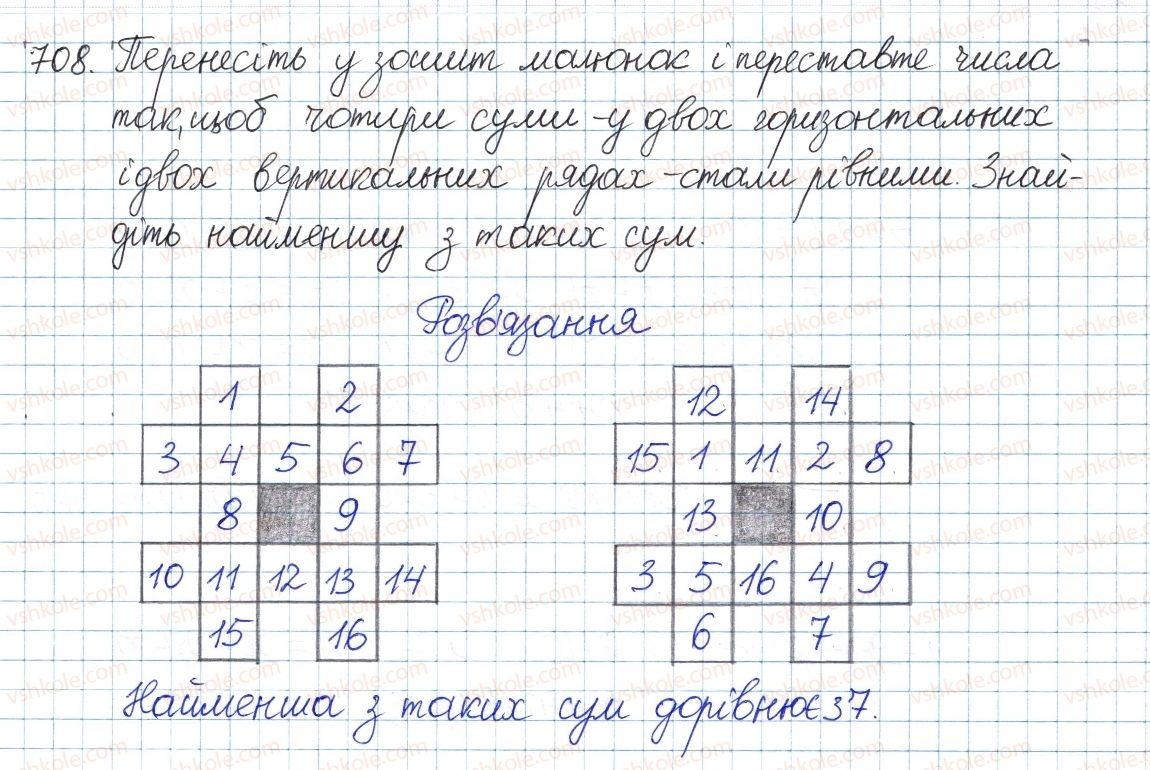 708. Перенесіть у зошит малюнак і переставте числа
так, щоб чотири суми - у двох горизонтальних
і двох вертикальних рядах - стали рівними. Знай-
діть найменшу з таких сум.
Розв'язання
1 2 12 14
3 4 5 6 7 15 1 11 2 8
8 9 13 10
10 11 12 13 14 3 5 16 4 9
15 16 6 7
Найменша з таких сум дорівнює 37.
vshkole.com